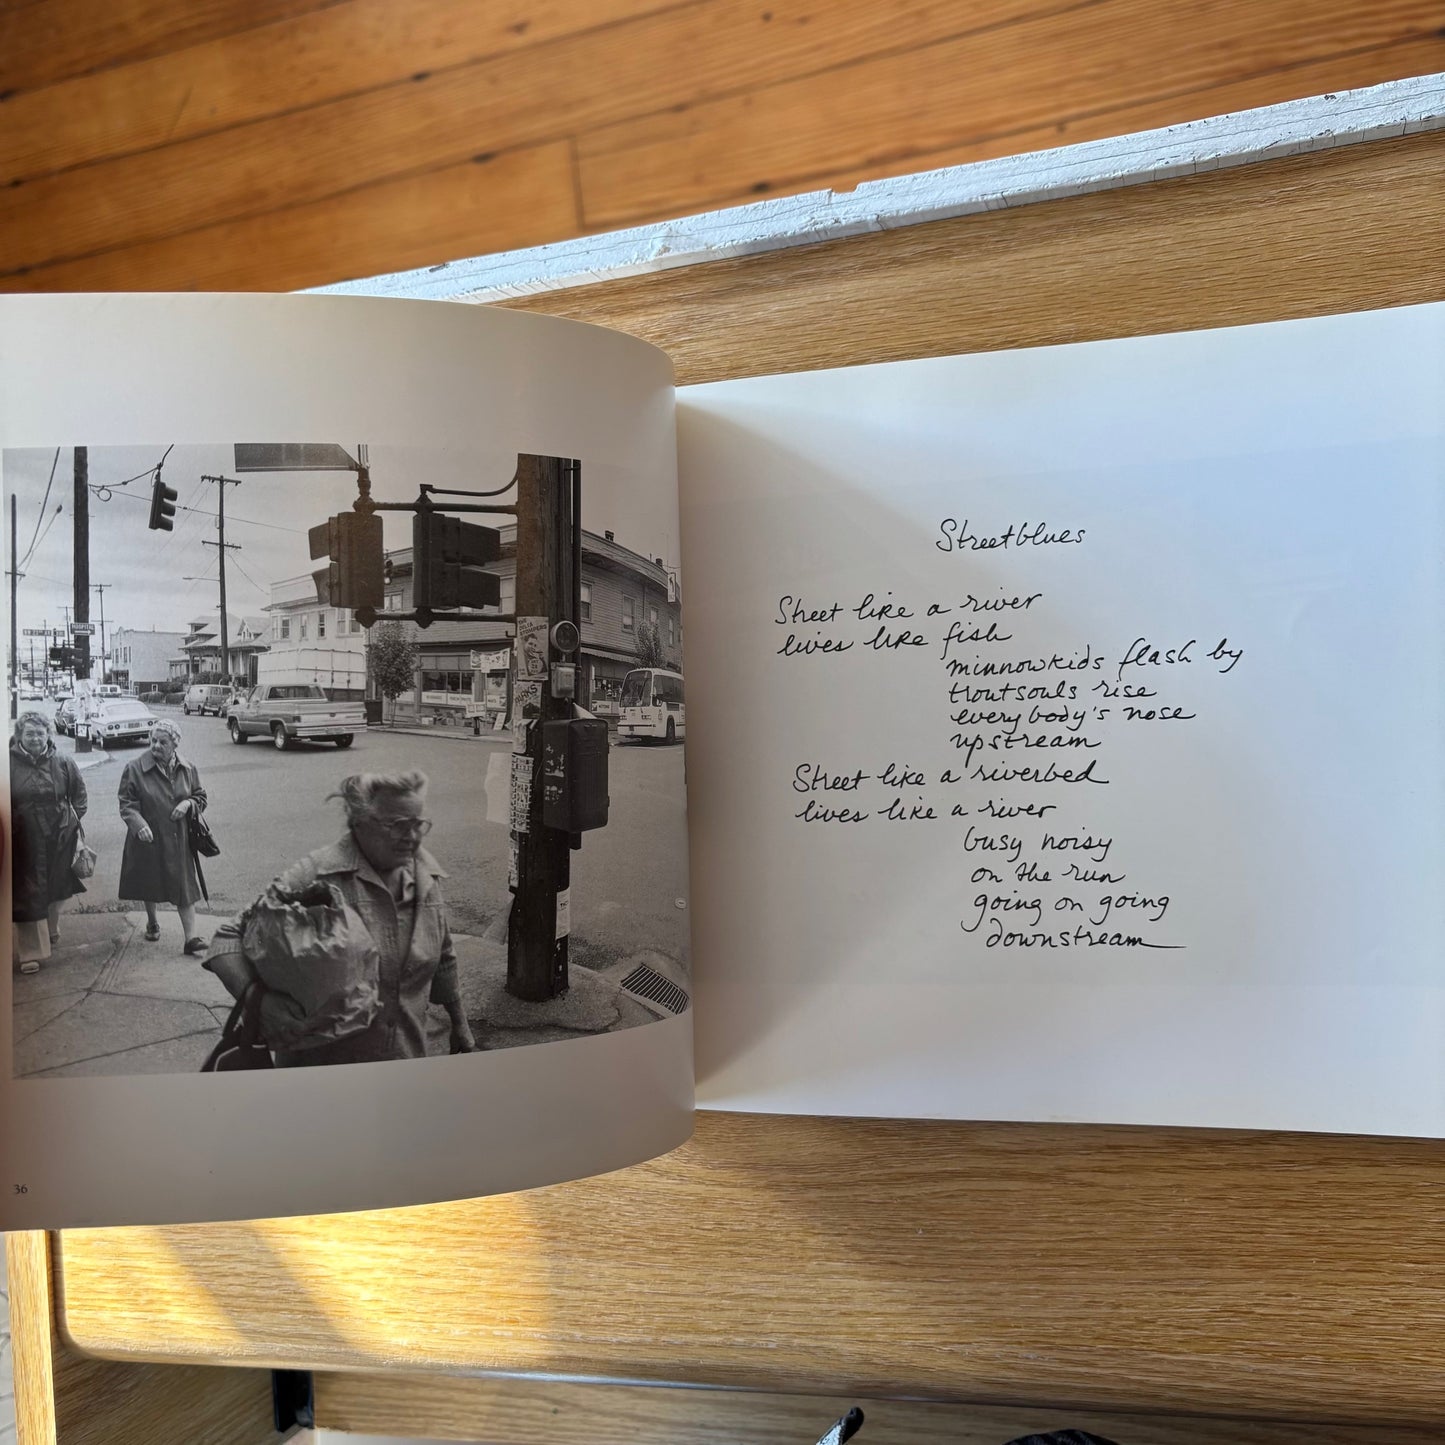 HOSPITAL
THE
DELTA
STOMPERS
36
Streetblues
Street like a river
lives like fish
minnowkids flash by
troutsouls rise
everybody's nose
upstream
Street like a riverbed
lives like a river
busy noisy
on the run
going on going
downstream